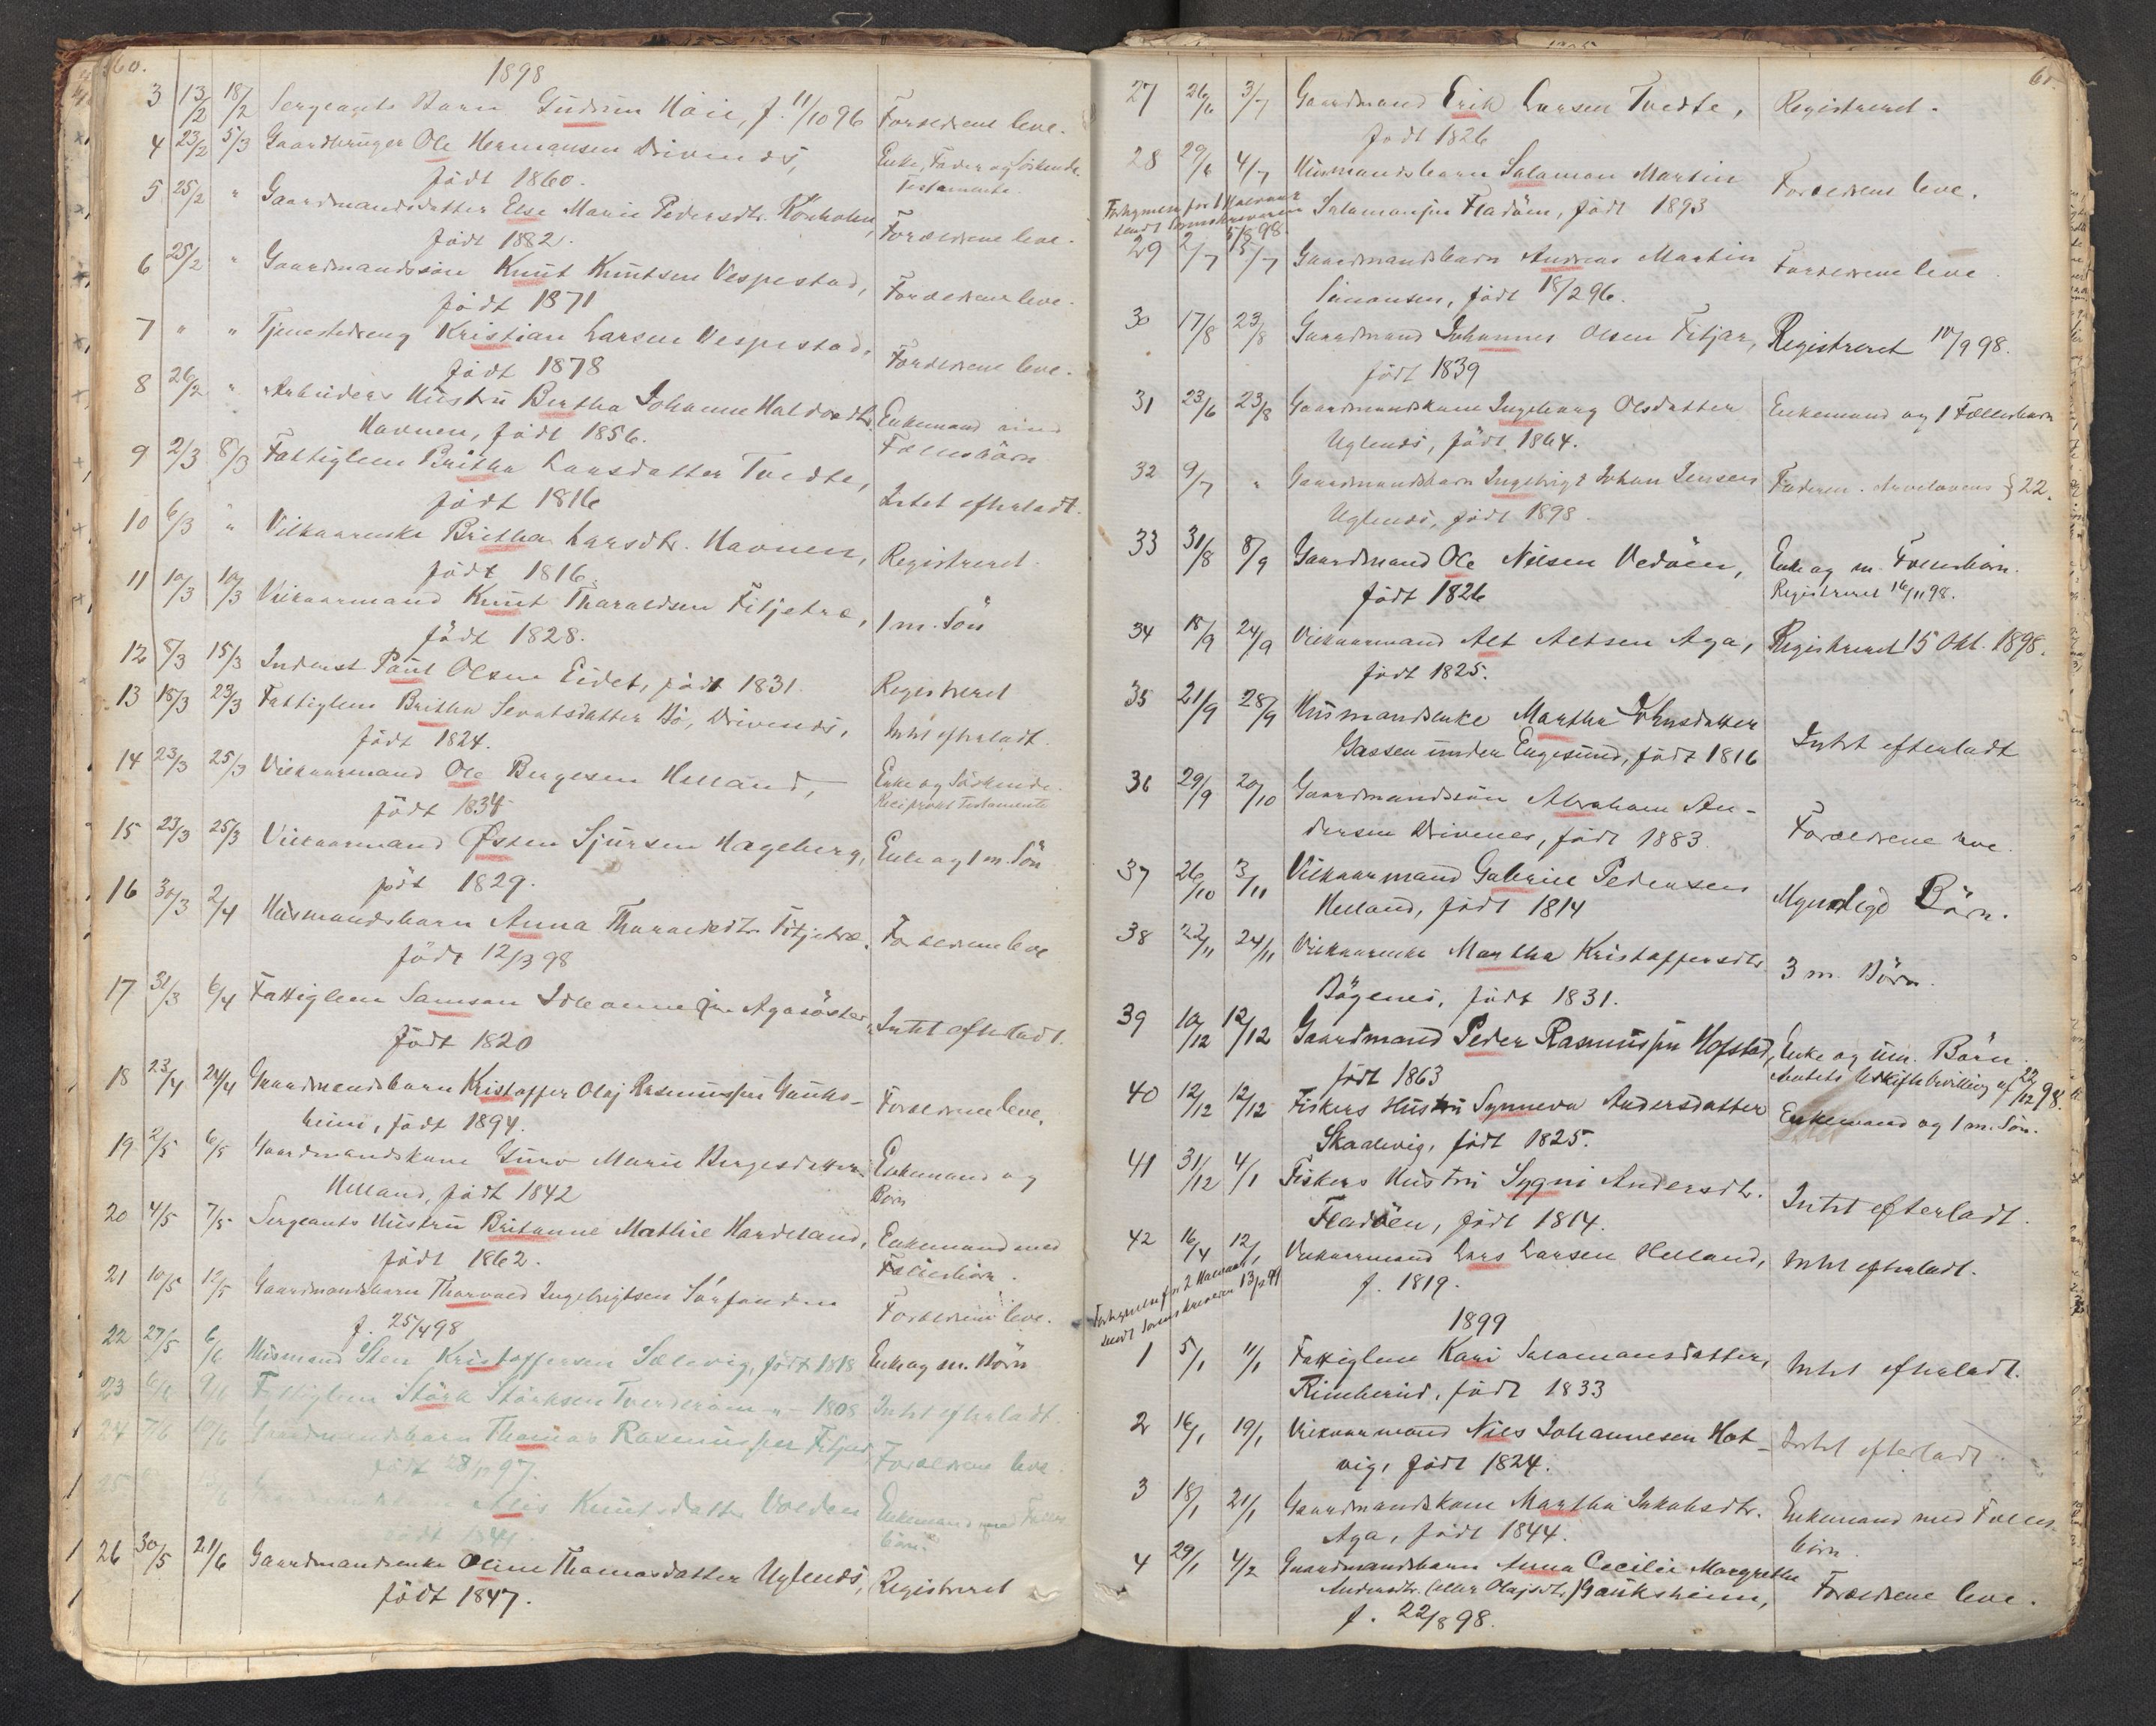 60.
1898
3 13/2 18/2 Sergeants Barn Gudrun Höie, f. 11/10 96 Forældrene leve.
4 23/2 5/3 Gaardbruger Ole Hermansen Drivenes, Enke, Fader og Söskende.
født 1860. Testamente.
5 25/2 " Gaardmandsdatter Else Marie Pedersdtr. Koxholm, Forældrene leve.
født 1882.
6 25/2 " Gaardmandssön Knut Knutsen Vespestad, Forældrene leve.
født 1871
7 " " Tjenestedreng Kristian Larsen Vespestad, Forældrene leve.
födt 1878
8 26/2 " Arbeiders Hustru Bertha Johanne Haldordtr. Enkemand med
Havnen, født 1856. Fællesbörn
9 2/3 8/3 Fattiglem Britha Larsdatter Tvedte, Intet efterladt.
født 1816
10 6/3 " Vilkaarenke Britha Larsdtr. Havnen, Registreret.
født 1816.
11 10/3 10/3 Vilkaarmand Knut Tharaldsen Fitjetræ, 1 m. Sön
födt 1828.
12 8/3 15/3 Inderst Paul Olsen Eidet, født 1831. Registreret
13 18/3 23/3 Fattiglem Britha Sevatsdatter Bö, Drivenes, Intet efterladt.
født 1824.
14 23/3 25/3 Vilkaarmand Ole Børgesen Helland, Enke og Söskende.
født 1834 Reciprokt Testamente
15 23/3 25/3 Vilkaarmand Østen Sjursen Hageberg, Enke og 1 m. Sön
født 1829.
16 30/3 2/4 Husmandsbarn Anna Tharaldsdtr. Fitjetræ. Forældrene leve
født 12/3 98
17 31/3 6/4 Fattiglem Samson Johannessen Agasöster, Intet efterladt.
født 1820
18 23/4 24/4 Gaardmandsbarn Kristoffer Olaj Rasmussen Gauks- Forældrene leve.
heim, født 1894.
19 2/5 6/5 Gaardmandskone Guro Marie Børgesdatter Enkemand og
Helland, født 1842 Børn
20 4/5 7/5 Sergeants Hustru Britanne Mathie Hardeland, Enkemand med
født 1862. Fællesbörn.
21 10/5 12/5 Gaardmandsbarn Thorvald Ingebrigtsen Sörfonden Forældrene leve.
f. 25/4 98
22 27/5 6/6 Husmand Sten Kristoffersen Sælevig, født 1818 Enke og m. Börn
23 6/6 9/6 Fattiglem Störk Störksen Tverderöm " 1808 Intet efterladt.
24 7/6 10/6 Gaardmandsbarn Thomas Rasmussen Fitjar, Forældrene leve
født 28/12 97.
25 Alis Knutsdatter Volden Enkemand med Fælles
født 1841. börn.
26 30/5 21/6 Gaardmandsenke Oline Thomasdatter Uglenes, Registreret
födt 1847.
61.
27 26/6 3/7 Gaardmand Erik Larsen Tvedte, Registreret.
født 1826
28 29/6 4/7 Husmandsbarn Salamon Martin Forældrene leve.
Salamonsen Fladöen, født 1893
Fortegnelse for 1 Halvaar
sendt Sorenskriveren 5/8 98.
29 2/7 5/7 Gaardmandsbarn Andreas Martin Forældrene leve.
Simonsen, født 18/2 96.
30 17/8 23/8 Gaardmand Johannes Olsen Fitjar, Registreret 10/9 98.
født 1839
31 23/6 23/8 Gaardmandskone Ingeborg Olsdatter Enkemand og 1 Fællesbarn
Uglenes, född 1864.
32 9/7 " Gaardmandsbarn Ingebrigt Johan Jensen Faderen. Arvelovens § 22.
Uglenes, født 1898.
33 31/8 8/9 Gaardmand Ole Nilsen Vedöen, Enke og m. Fællesbörn.
født 1826 Registreret 16/11 98.
34 18/9 24/9 Vilkaarmand Alt Altsen Aga, Registreret 15 Okt. 1898.
født 1825.
35 21/9 28/9 Husmandsenke Martha Johnsdatter
Gassen under Engesund, født 1816 Intet efterladt
36 29/9 20/10 Gaardmandssön Abraham An-
dersen Drivenes, født 1883. Forældrene leve.
37 26/10 3/11 Vilkaarmand Gabriel Pedersen Myndige Börn.
Helland, født 1814
38 22/11 24/11 Vilkaarenke Martha Kristoffersdtr. 3 m. Börn.
Bögenes, födt 1831.
39 10/12 12/12 Gaardmand Peder Rasmussen Hofstad, Enke og um. Börn.
født 1863 Amtets Uskiftebevilling af 22/12 98.
40 12/12 12/12 Fiskers Hustru Synneva Andersdatter Enkemand og 1 m. Sön.
Skaalevig, född 1825.
41 31/12 4/1 Fiskers Hustru Sygni Andersdtr. Intet efterladt.
Fladöen, født 1814.
42 16/4 12/1 Vilkaarmand Lars Larsen Helland, Intet efterladt.
f. 1819.
Fortegnelse for 2 Halvaar
sendt Sorenskriveren 13/1 99
1899
1 5/1 11/1 Fattiglem Kari Salamonsdatter, Intet efterladt.
Rimbereid, født 1833
2 16/1 19/1 Vilkaarmand Nils Johannesen Hat- Intet efterladt
vig, født 1824.
3 18/1 21/1 Gaardmandskone Martha Jakobsdtr. Enkemand med Fælles
Aga, født 1844. börn.
4 29/1 4/2 Gaardmandsbarn Anna Cecilie Margrethe
Andersdtr. (eller Olajsdtr.) Gauksheim, Forældrene leve.
f. 22/8 98.